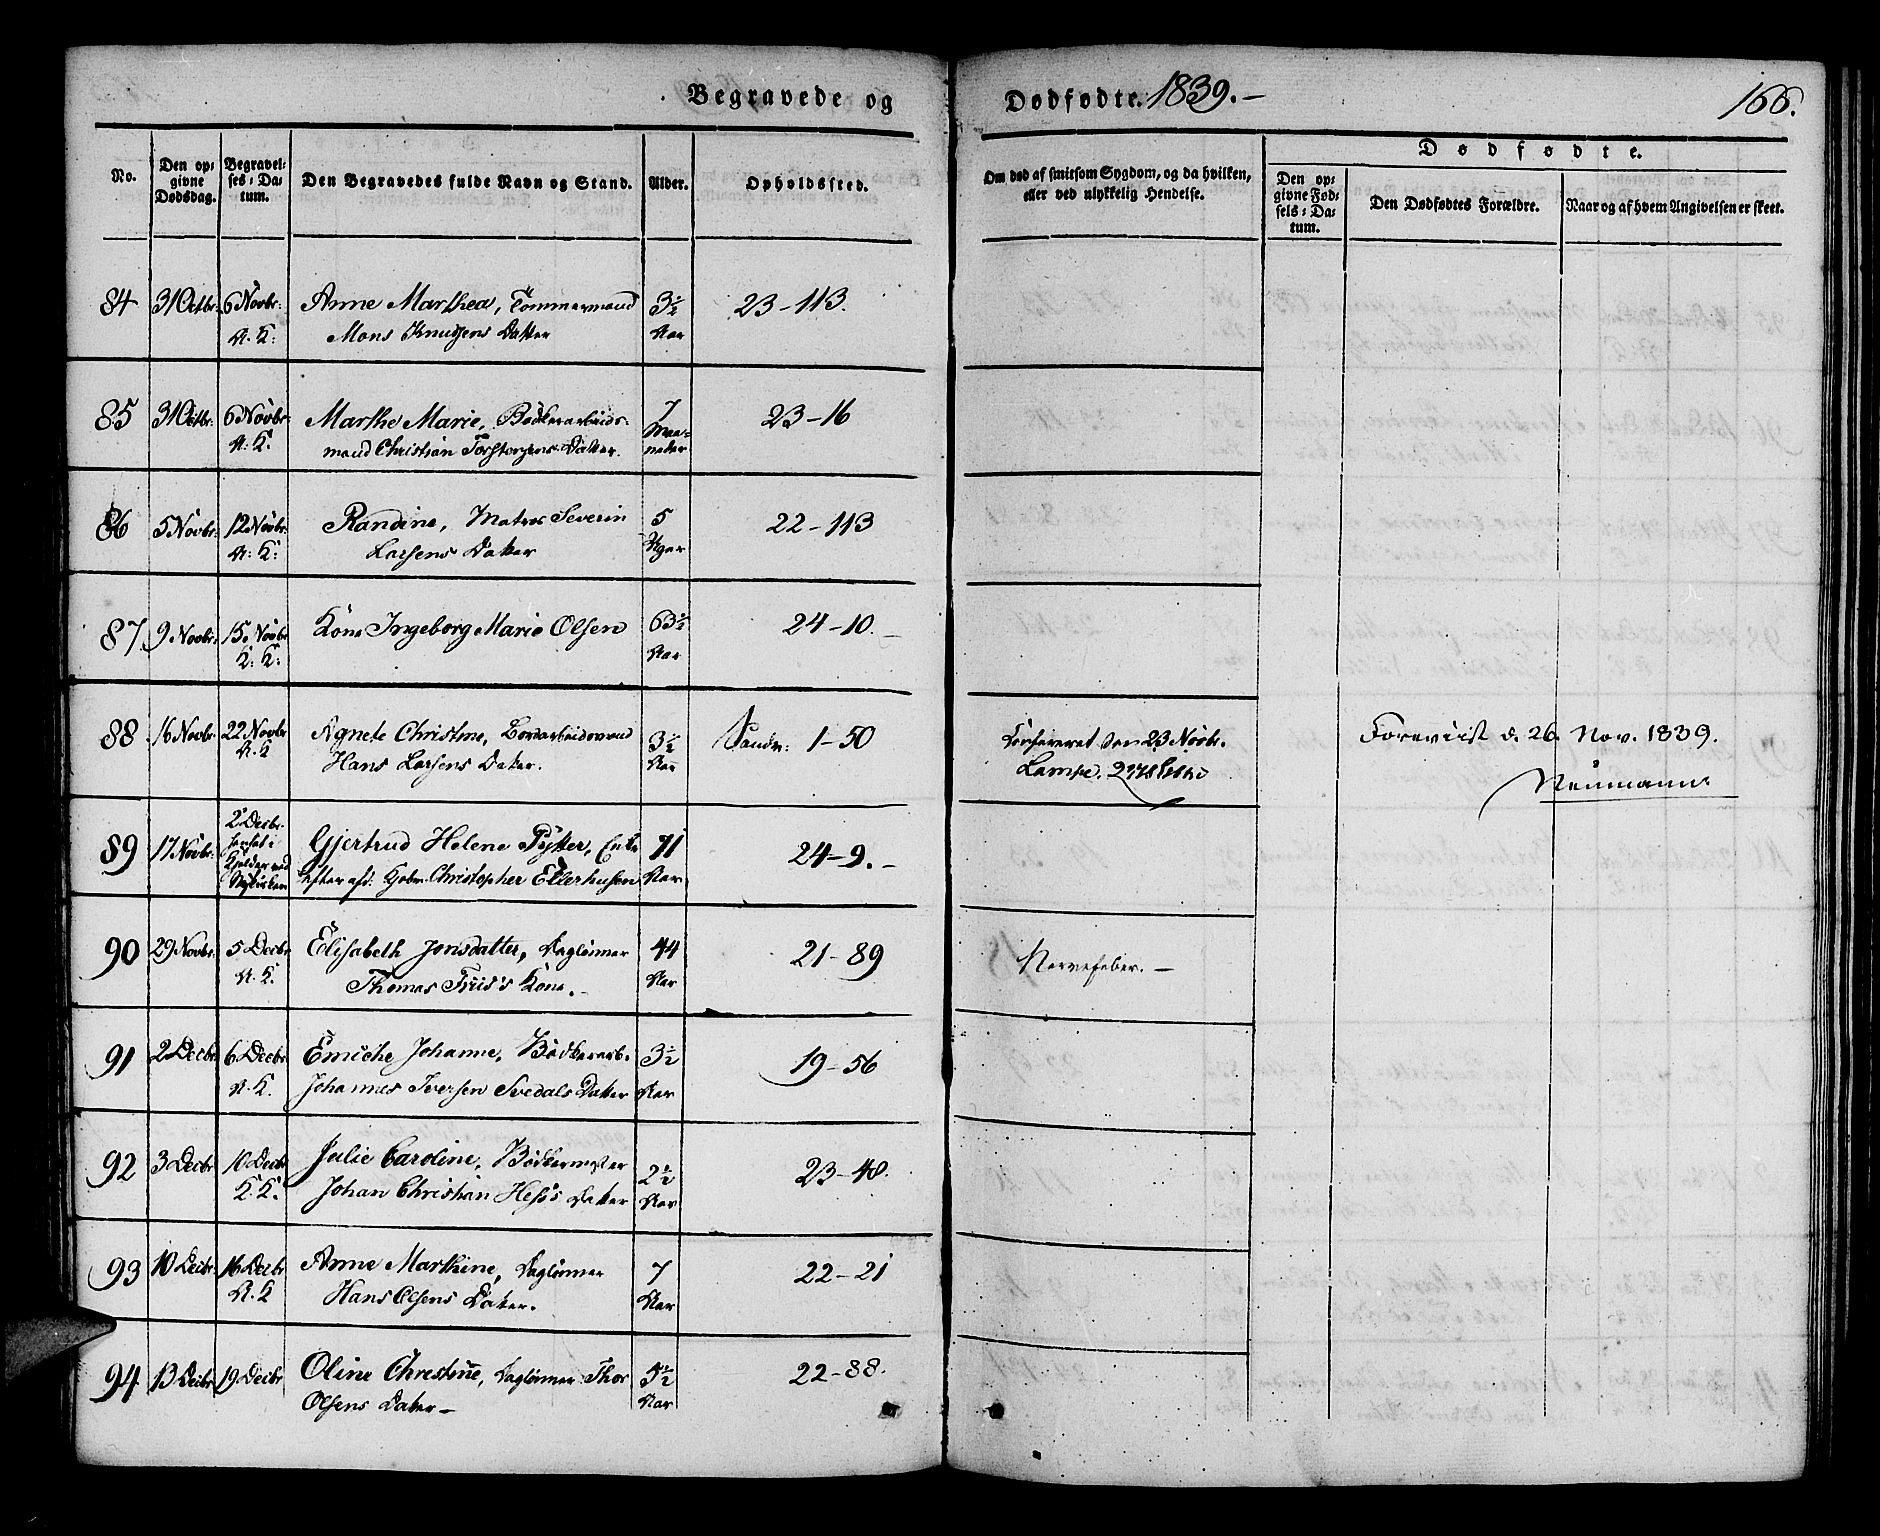 Begravede og Dødfødte. 1839. 166.
No. | Den op-givne Dødsdag. | Begravel-ses-Da-tum. | Den Begravedes fulde Navn og Stand. | Alder. | Opholdssted. | Om død af smitsom Sygdom, og da hvilken, eller ved ulykkelig Hendelse. | Dødfødte.
Den op-givne Fød-sels-Da-tum. | Den Dødfødtes Forældre. | Naar og af hvem Angivelsen er skeet.
84 31 Octbr: 6 Novbr: Anne Marthea, Tømmermand 3½ 23-113.
A. K: Mons Knutzens Datter Aar
85 31 Octbr: 6 Novbr: Marthe Marie, Bødkerarbeids- 7 23-16
A: K. mand Christian Torstensens Datter. Maa-neder
86 5 Novbr: 12 Novbr: Randine, Matros Severin 5 22-113
A: K: Larsens Datter Uger
87. 9 Novbr: 15 Novbr Kone Ingeborg Marie Olsen 63½ 24-10.
K: K: Aar
88 16 Novbr. 22 Novbr Agnete Christine, Bordarbeidsmand 3½ Sandv: 1-50 Confereret den 23 Novbr. Foreviist d. 26. Nov. 1839.
A. K Hans Larsens Datter. Aar Lampe. Neumann
89 17 Novbr: 2 Decbr. Gjertrud Helene Pytter, Enke 71 24-9.
hensat i Kjelder ved Nykirken efter afd: Christopher Ellerhusen Aar
90 29 Novbr. 5 Decbr Elisabeth Jonsdatter, Daglønner 44 21-89 Nervefeber.
A. K. Thomas Friis's Kone. Aar
91 2 Decbr 6 Decbr Emiche Johanne, Bødkerarb. 3½ 19-56
A. K. Johannes Iversen Svedals Datter Aar
92 3 Decbr 10 Decbr Julie Caroline, Bødkermester 2½ 23-48.
K. K. Johan Christian Hess's Datter Aar
93 10 Decbr. 16 Decbr Anne Marthine, Daglønner 7 22-21
A. K Hans Olsens Datter. Aar
94 13 Decbr 19 Decbr Oline Christine, Daglønner Thor 5½ 22-88.
Olsens Datter Aar